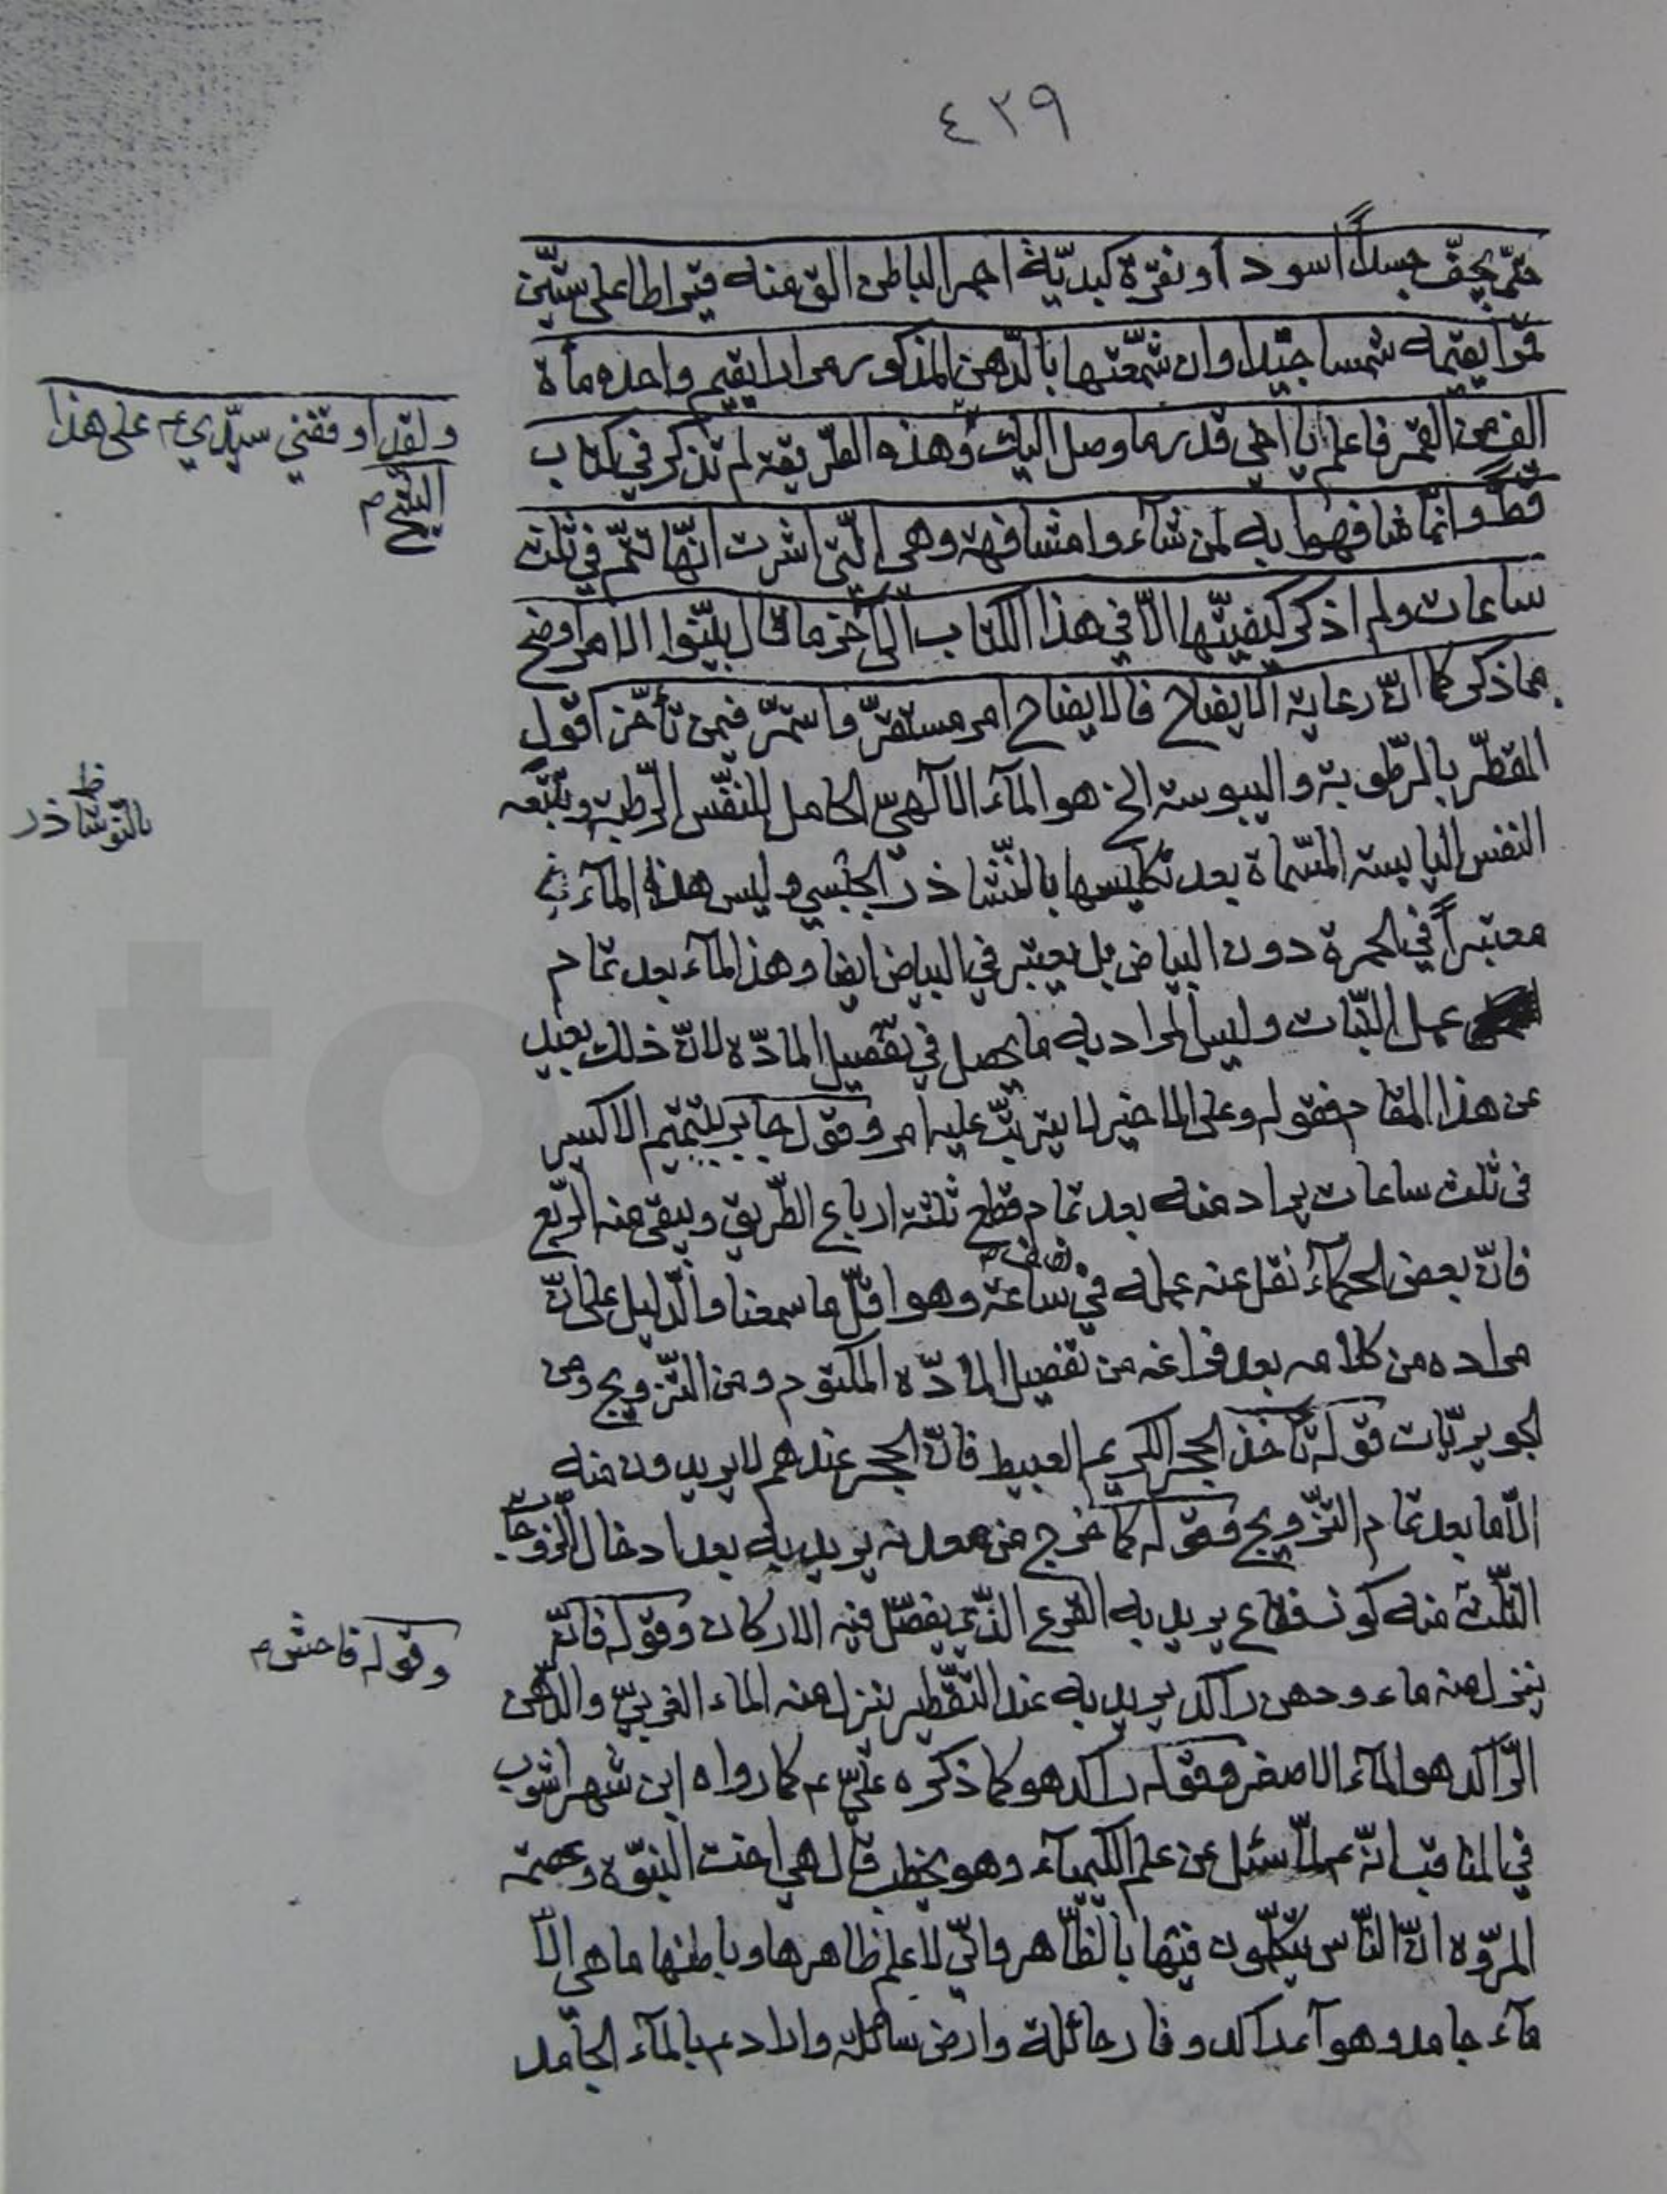 ٤٣٩
حتّى يجفّ جسداً اسود او نقرة كبديّة احمر الباطن الق منه قيراطا على ستّين
قمرا يقيمه شمسا جيّدا وان شمّعتها بالدّهن المذكور مرارا يقيم واحده مأة
الف من القمر فاعلم يا اخي قدر ما وصل اليك وهذه الطّريقة لم تذكر في كتاب
قطّ وانّما شافهوا به لمن شاء وا مشافهة وهي الّتي اشرت انّها تتمّ في ثلث
ساعات ولم اذكر كيفيّتها الّا في هذا الكتاب الى آخر ما قال بيّنوا الامر اوضح
مما ذكر كما انّ رعاية الايضاح فالايضاح امر مستقرّ واستمرّ فيمن تأخّر اقول
المقطّر بالرّطوبة واليبوسة الخ هو المآء الالهيّ الحامل للنّفس الرّطبة وتتبعه
النفس اليابسة المسّماة بعد تكليسها بالنّشاذر الجبسي وليس هذا المآء
معتبراً في الحمرة دون البياض بل يعتبر في البياض ايضا وهذا المآء بعد تمام
عمل النّبات وليس المراد به ما يحصل في تفصيل المادّه لانّ ذلك بعيد
عن هذا المقام فقوله وعلى الماضير لا يترتّب عليه امر وقول جابر يتمّم الاكسير
في ثلث ساعات يراد منه بعد تمام قطع ثلثة ارباع الطّريق ويبقى منه الرّبع
فانّ بعض الحكمآء نقل عنه عمله في نصف ساعة وهو اقلّ ما سمعنا والدّليل على انّ
مراده من كلامه بعد فراغه من تفصيل المادّه المكتوم ومن التّزويج ومن
قوله تأخذ الحجر الكريم العبيط فانّ الحجر عندهم لا يريدون منه
الّا ما بعد تمام التّزويج وقوله كما خرج من معدنه يريد به بعد ادخال الزّوجات
الثّلث منه كونه فقاع يريد به القرع الّذي يفصّل فيه الاركان وقوله فانّه
ينزل منه ماء ودهن راكد يريد به عند التّقطير ينزل منه الماء الغربيّ والدّهن
الرّاكد هو المآء الاصفر وقوله راكد هو كما ذكره عليّ ع كما رواه ابن شهراشوب
في المناقب انّه ع لمّا سئل عن علم الكيميآء وهو يخطب قال هي اخت النبّوة وعصمة
المروّه انّ النّاس يتكلّمون فيها بالظّاهر وانّي لاعلم ظاهرها وباطنها ما هي الّا
مآء جامد وهوآء راكد و نار حائلة وارض سائلة واراد ع بالمآء الجامد
ولقد اوقفني سيّدي ع على هذا
بالنّوشاذر ظ
وقوله فاحش م